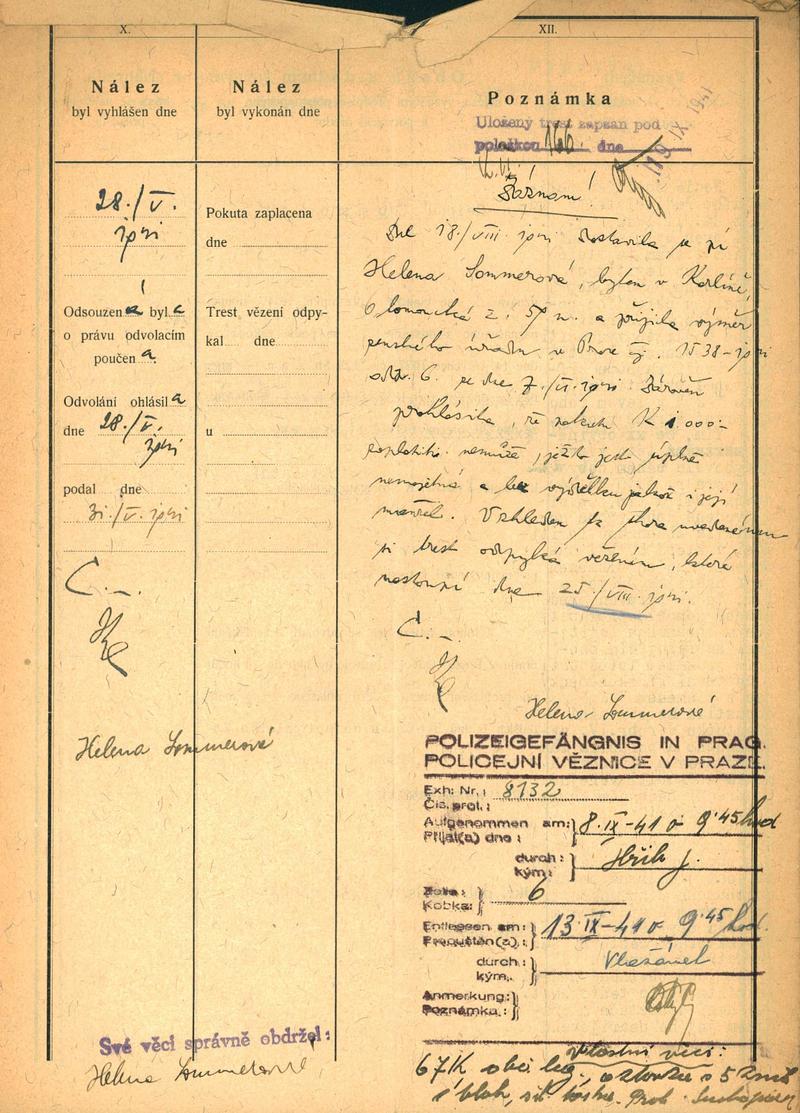 X.
Nález
byl vyhlášen dne
28./V.
Odsouzena byla
o právu odvolacím
poučena.
Odvolání ohlásila
dne 28./V.
podal dne
31./V.
Č. -.
Helena Sommerová
Své věci správně obdržel:
Helena Sommerová
Nález
byl vykonán dne
Pokuta zaplacena
dne
Trest vězení odpy-
kal dne
u
XII.
Poznámka
Uložený trest zapsán pod
položkou 166 dne 19 IX 1941
Záznam!
Dne 18./VIII. dostavila se pí
Helena Sommerová, bytem v Karlíně,
Olomoucká č. 57 n. a přijala výměr
zemského úřadu v Praze čj. 1538-
odd. 6. ze dne 7./VI. Zároveň
prohlásila, že pokutu K 1000-
zaplatiti nemůže, ježto jest úplně
nemajetná a bez výdělku jakož i její
manžel. Vzhledem k shora uvedenému
si trest odpyká vězením, které
nastoupí dne 25./VIII.
Č. -.
Helena Sommerová
POLIZEIGEFÄNGNIS IN PRAG.
POLICEJNÍ VĚZNICE V PRAZE.
Exh: Nr.: 8132
Čís. prot.:
Aufgenommen am: 8. IX-41 o 9.45 hod
Přijat(a) dne:
durch:
kým:
Zelle: 6
Kobka:
Entlassen am: 13 IX-41 o 9.45 hod.
Propuštěn(a):
durch:
kým:
Anmerkung:
Poznámka:
Vlastní věci:
67 K